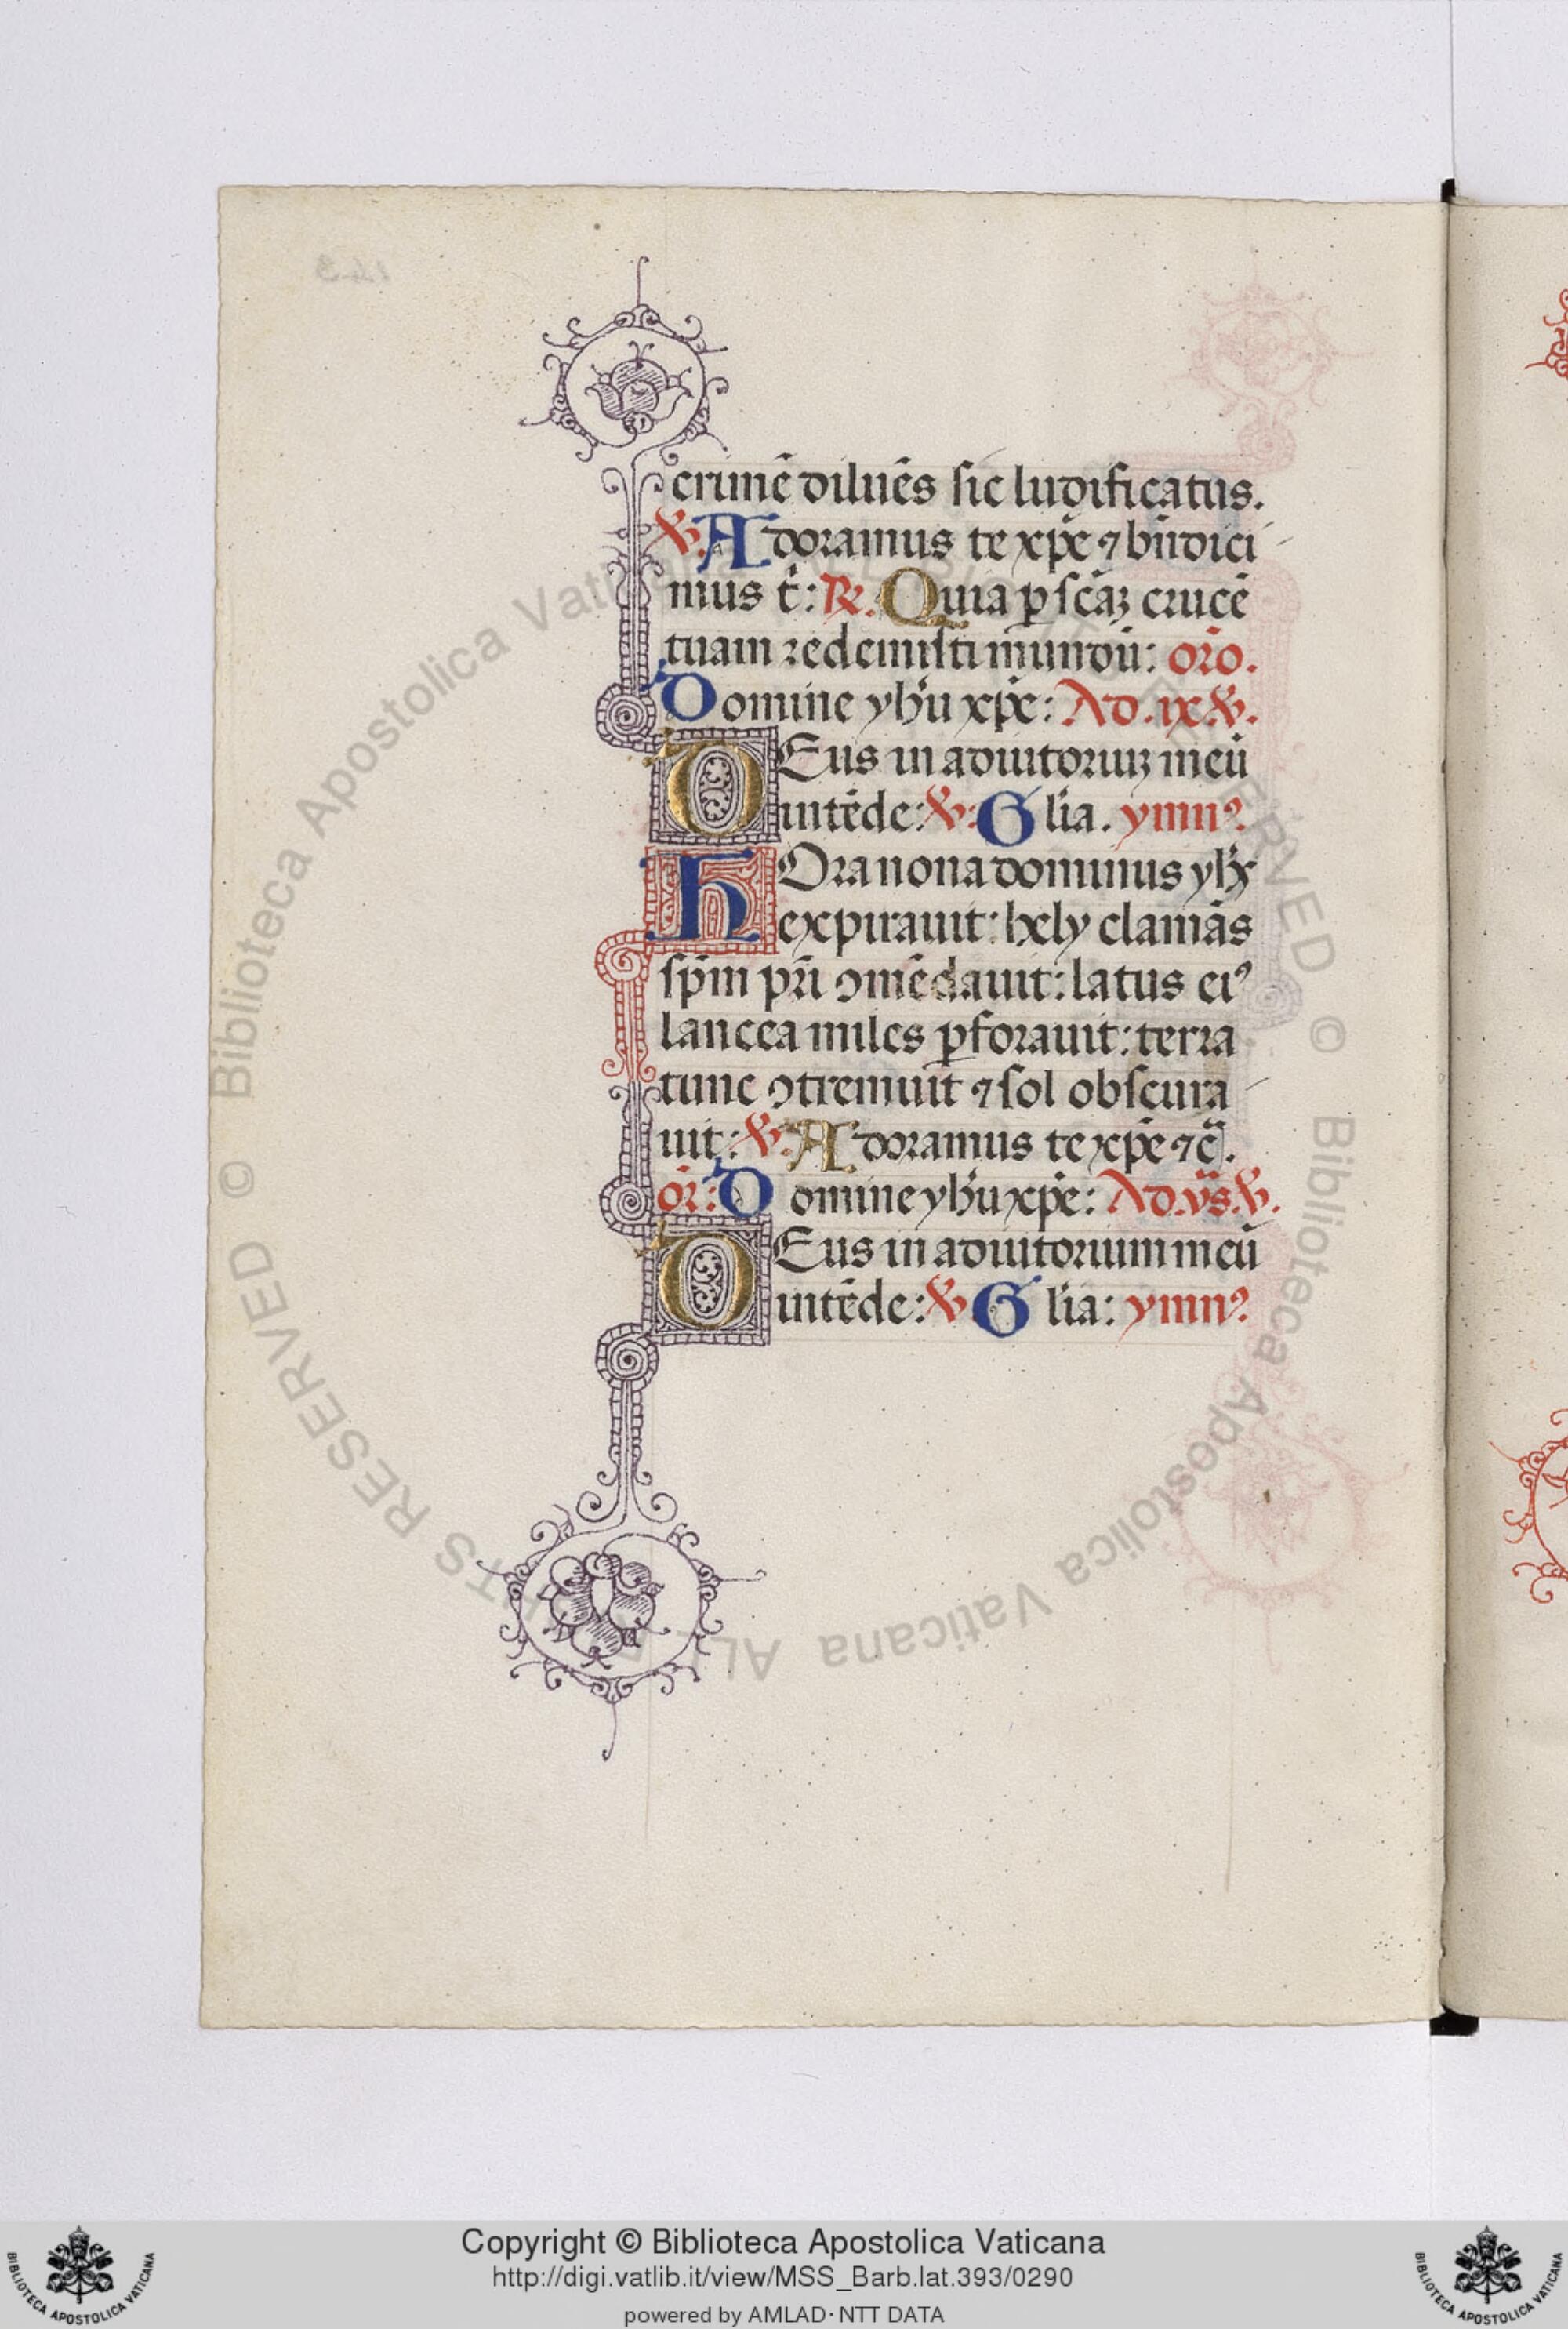 crimē diluēs sic ludificatus.
℣. Adoramus te xp̄e ⁊ bn̄dici
mus t̄: ℞. Quia ꝑ sc̄aꝫ crucē
tuam redemisti mundū: or̄o.
Domine yh̄u xp̄e: Ad .ix. ℣.
DEus in adiutoriuꝫ meū
intēde: ℣: Glīa. ymnꝰ.
HOra nona dominus yh̄s
expirauit: hely clamās
sp̄m pr̄i ɔmēdauit: latus eiꝰ
lancea miles ꝑforauit: terra
tunc ɔtremuit ⁊ sol obscura
uit: ℣. Adoramus te xp̄e ⁊c̄.
or̄: Domine yh̄u xp̄e: Ad. vs̄. ℣.
DEus in adiutorium meū
intēde: ℣ Glīa: ymnꝰ.
143
© Biblioteca Apostolica Vaticana ALL RIGHTS RESERVED
© Biblioteca Apostolica Vaticana ALL RIGHTS RESERVED
Copyright © Biblioteca Apostolica Vaticana
http://digi.vatlib.it/view/MSS_Barb.lat.393/0290
powered by AMLAD·NTT DATA
BIBLIOTECA APOSTOLICA VATICANA
BIBLIOTECA APOSTOLICA VATICANA